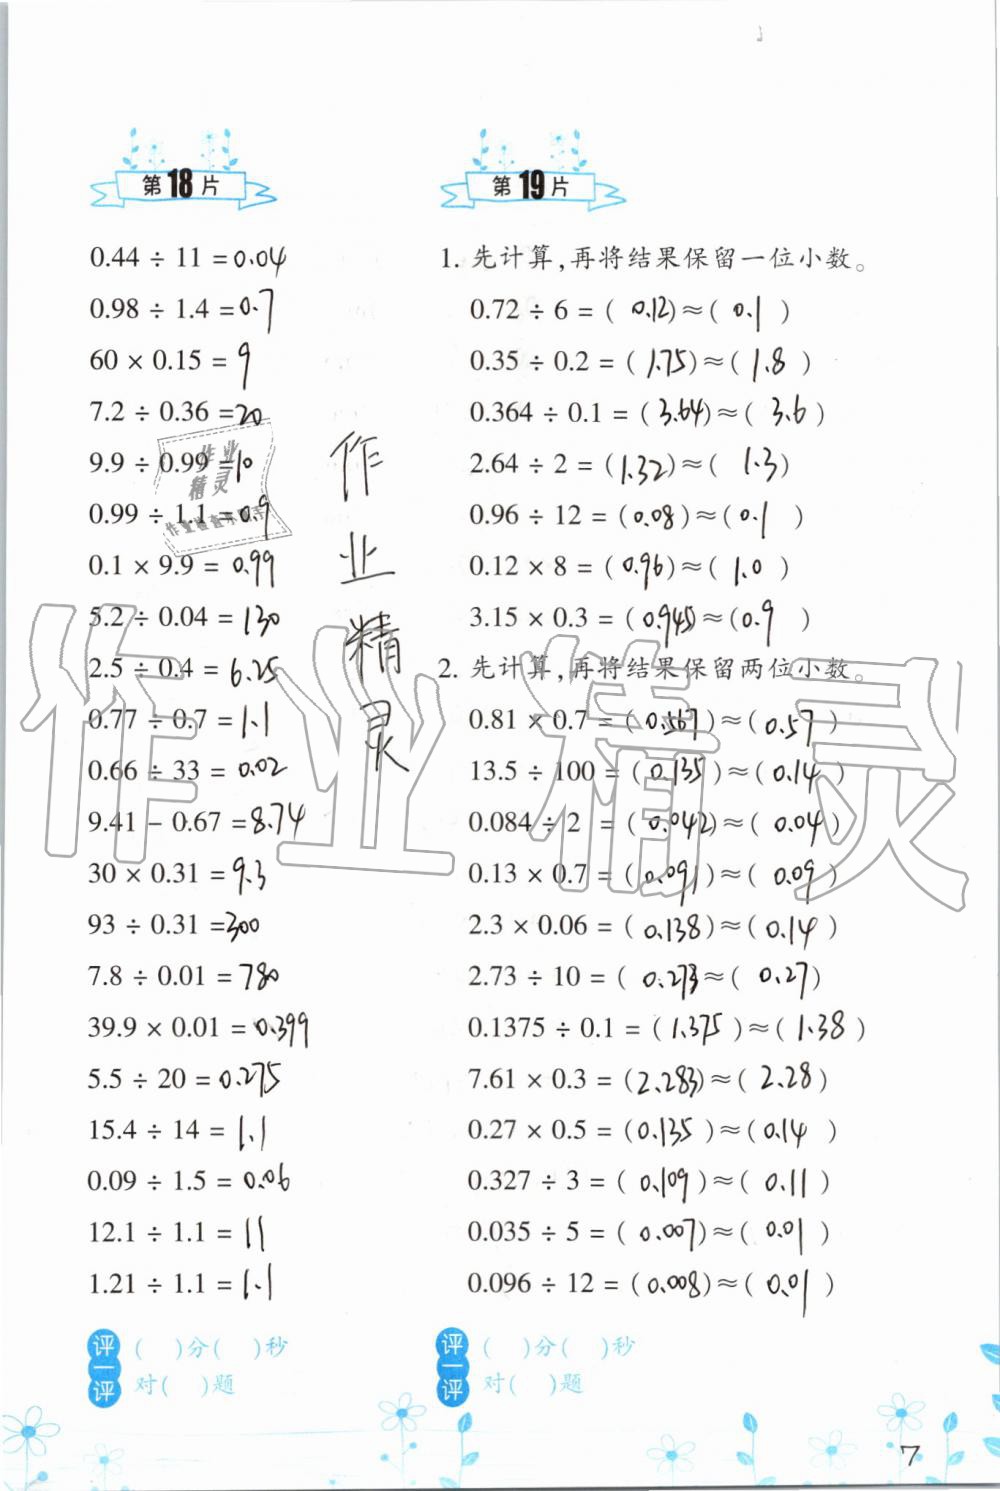 第18片
0.44 ÷ 11 = 0.04
0.98 ÷ 1.4 = 0.7
60 × 0.15 = 9
7.2 ÷ 0.36 = 20
9.9 ÷ 0.99 = 10
0.99 ÷ 1.1 = 0.9
0.1 × 9.9 = 0.99
5.2 ÷ 0.04 = 130
2.5 ÷ 0.4 = 6.25
0.77 ÷ 0.7 = 1.1
0.66 ÷ 33 = 0.02
9.41 − 0.67 = 8.74
30 × 0.31 = 9.3
93 ÷ 0.31 = 300
7.8 ÷ 0.01 = 780
39.9 × 0.01 = 0.399
5.5 ÷ 20 = 0.275
15.4 ÷ 14 = 1.1
0.09 ÷ 1.5 = 0.06
12.1 ÷ 1.1 = 11
1.21 ÷ 1.1 = 1.1
评一评
( )分( )秒
对( )题
作业精灵
作业
精灵
作业精灵
第19片
1. 先计算,再将结果保留一位小数。
0.72 ÷ 6 = ( 0.12 ) ≈ ( 0.1 )
0.35 ÷ 0.2 = ( 1.75 ) ≈ ( 1.8 )
0.364 ÷ 0.1 = ( 3.64 ) ≈ ( 3.6 )
2.64 ÷ 2 = ( 1.32 ) ≈ ( 1.3 )
0.96 ÷ 12 = ( 0.08 ) ≈ ( 0.1 )
0.12 × 8 = ( 0.96 ) ≈ ( 1.0 )
3.15 × 0.3 = ( 0.945 ) ≈ ( 0.9 )
2. 先计算,再将结果保留两位小数。
0.81 × 0.7 = ( 0.567 ) ≈ ( 0.57 )
13.5 ÷ 100 = ( 0.135 ) ≈ ( 0.14 )
0.084 ÷ 2 = ( 0.042 ) ≈ ( 0.04 )
0.13 × 0.7 = ( 0.091 ) ≈ ( 0.09 )
2.3 × 0.06 = ( 0.138 ) ≈ ( 0.14 )
2.73 ÷ 10 = ( 0.273 ≈ ( 0.27 )
0.1375 ÷ 0.1 = ( 1.375 ) ≈ ( 1.38 )
7.61 × 0.3 = ( 2.283 ) ≈ ( 2.28 )
0.27 × 0.5 = ( 0.135 ) ≈ ( 0.14 )
0.327 ÷ 3 = ( 0.109 ) ≈ ( 0.11 )
0.035 ÷ 5 = ( 0.007 ) ≈ ( 0.01 )
0.096 ÷ 12 = ( 0.008 ) ≈ ( 0.01 )
评一评
( )分( )秒
对( )题
7